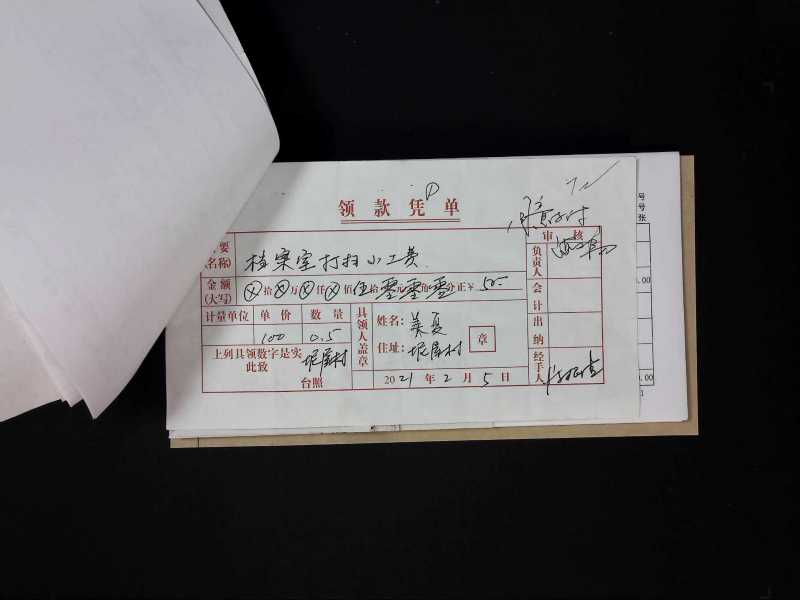 领款凭单
摘要(名称) 档案室打扫小工费
金额(大写) ⊗拾⊗万⊗仟⊗佰伍拾零元零角零分正¥50
计量单位 单价 数量
100 0.5
上列具领数字是实
此致
台照
具领人盖章
姓名:美夏
住址:坭屋村
章
2021年2月5日
审核
负责人
会计
出纳
经手人
号
号
张